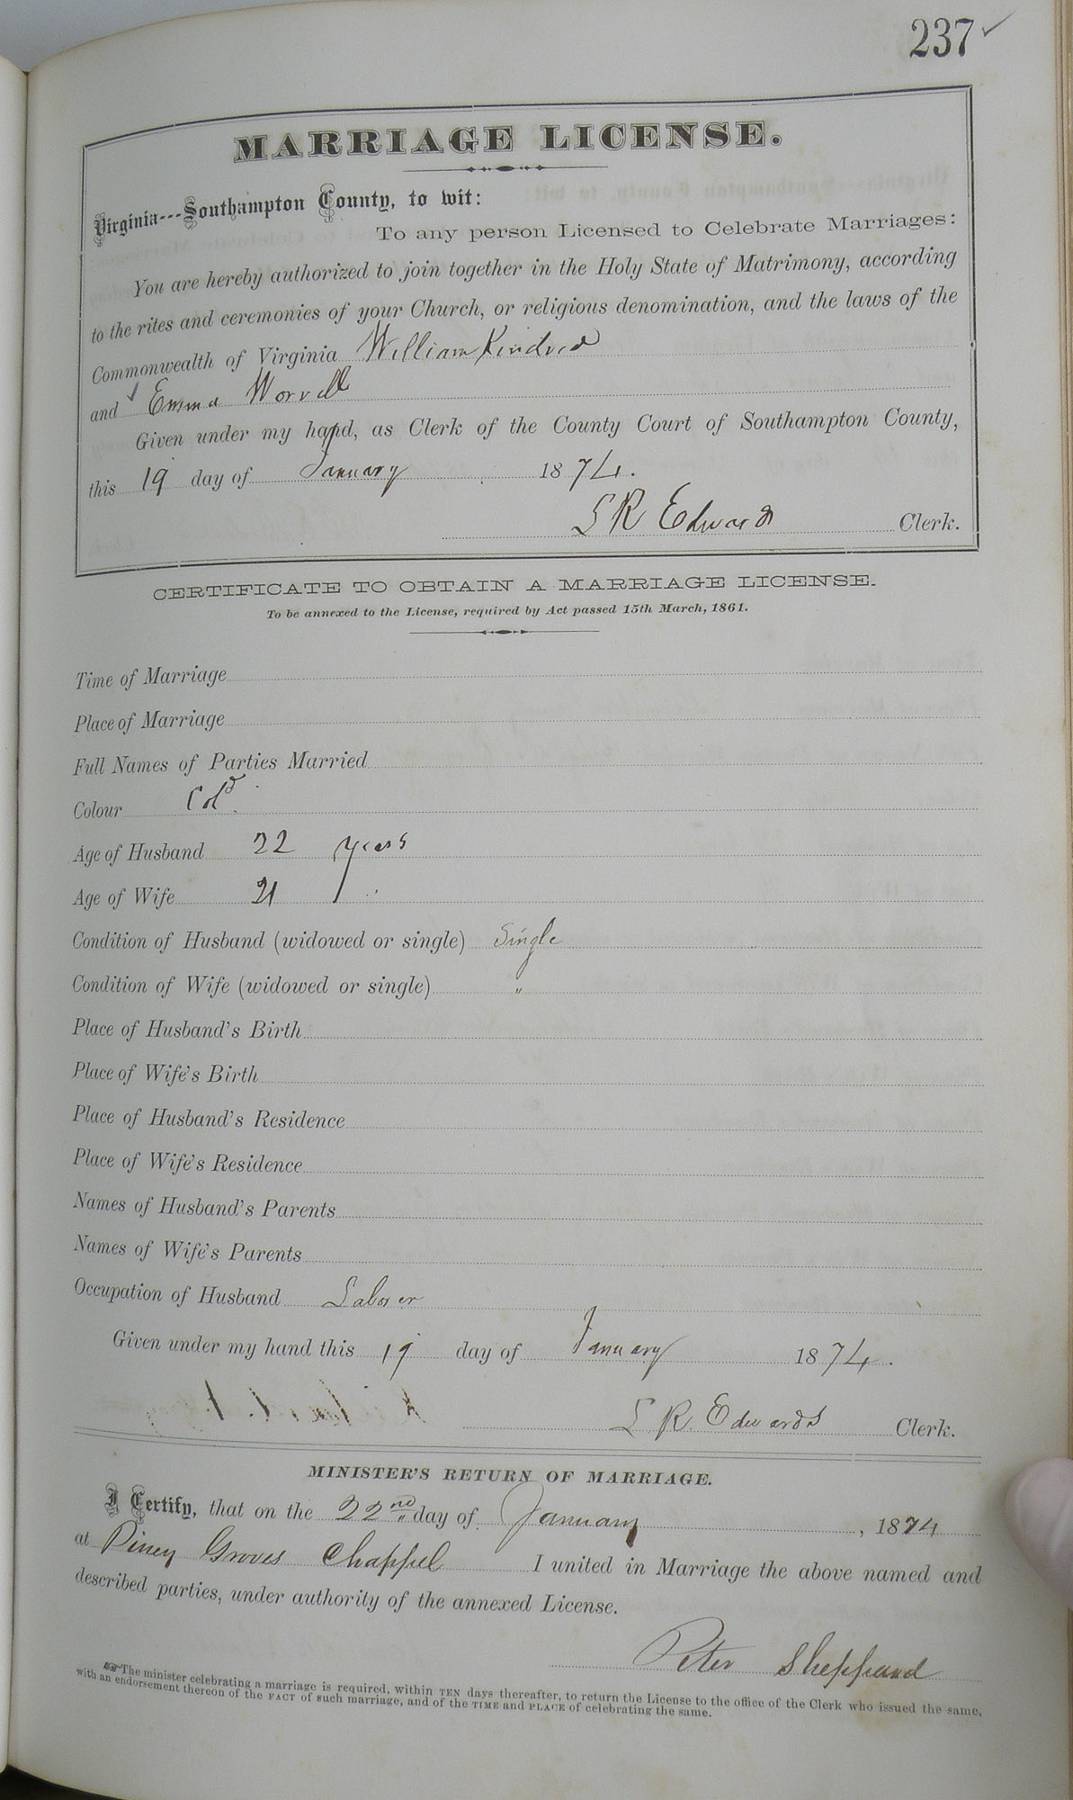 237 ✓
MARRIAGE LICENSE.
Virginia---Southampton County, to wit:
To any person Licensed to Celebrate Marriages:
You are hereby authorized to join together in the Holy State of Matrimony, according
to the rites and ceremonies of your Church, or religious denomination, and the laws of the
Commonwealth of Virginia William Kindred
and Emma Worrell
Given under my hand, as Clerk of the County Court of Southampton County,
this 19 day of January 1874.
L R Edwards Clerk.
CERTIFICATE TO OBTAIN A MARRIAGE LICENSE.
To be annexed to the License, required by Act passed 15th March, 1861.
Time of Marriage
Place of Marriage
Full Names of Parties Married
Colour Cold.
Age of Husband 22 years
Age of Wife 21
Condition of Husband (widowed or single) Single
Condition of Wife (widowed or single) "
Place of Husband's Birth
Place of Wife's Birth
Place of Husband's Residence
Place of Wife's Residence
Names of Husband's Parents
Names of Wife's Parents
Occupation of Husband Laborer
Given under my hand this 19 day of January 1874.
L R. Edwards Clerk.
MINISTER'S RETURN OF MARRIAGE.
I Certify, that on the 22nd day of January, 1874
at Piney Groves Chappel I united in Marriage the above named and
described parties, under authority of the annexed License.
Peter Sheppard
☞The minister celebrating a marriage is required, within TEN days thereafter, to return the License to the office of the Clerk who issued the same,
with an endorsement thereon of the FACT of such marriage, and of the TIME and PLACE of celebrating the same.